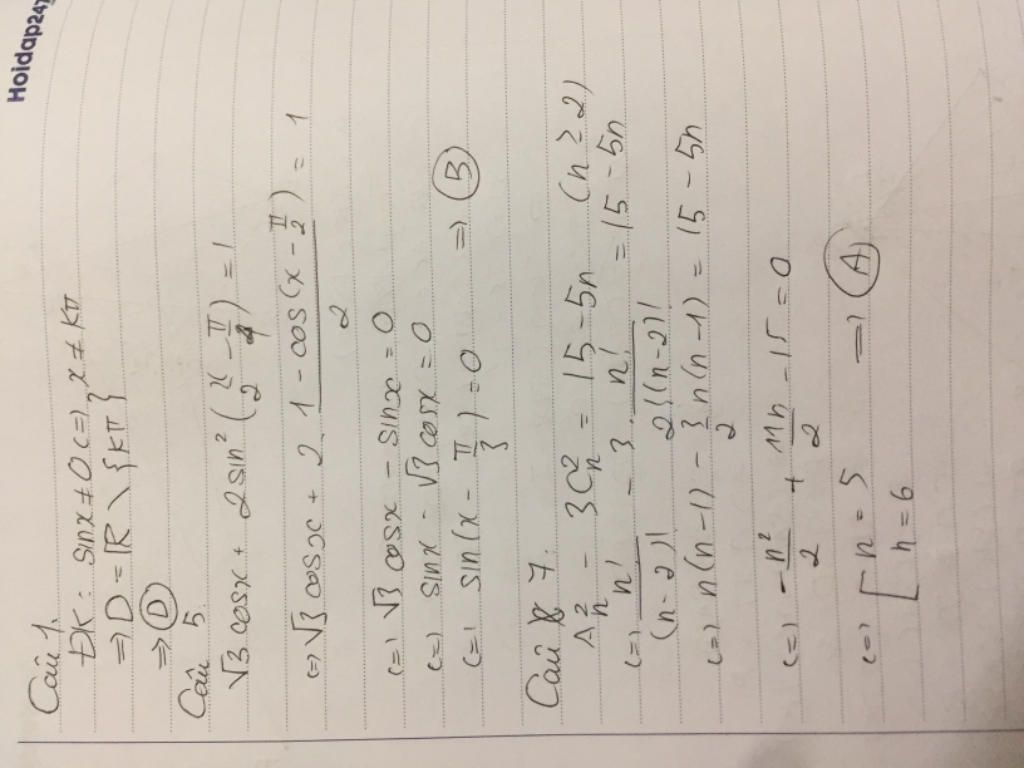 Hoidap247
Câu 1.
ĐK: sinx ≠ 0 <=> x ≠ kπ
=> D = ℝ \ {kπ}
=> (D)
Câu 5.
√3.cosx + 2sin²(x/2 - π/4) = 1
<=> √3 cosx + 2. (1 - cos(x - π/2))/2 = 1
<=> √3 cosx - sinx = 0
<=> sinx - √3cosx = 0
<=> sin(x - π/3) = 0 => (B)
Câu 7.
A²ₙ - 3C²ₙ = 15 - 5n (n ≥ 2)
<=> n!/(n-2)! - 3. n!/(2!(n-2)!) = 15 - 5n
<=> n(n-1) - 3/2 n(n-1) = 15 - 5n
<=> -n²/2 + 11n/2 - 15 = 0
<=> [ n = 5 => (A)
n = 6